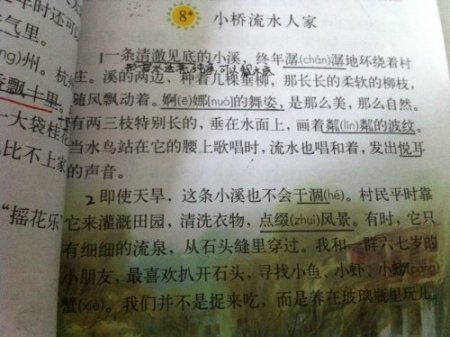 年时还可
气里。
ng)州。杭
飘十里。
一大袋桂花
比不上家
“摇花乐”
8* 小桥流水人家
1一条清澈见底的小溪，终年潺(chán)潺地环绕着村
庄。溪的两边，种着几棵垂柳，那长长的柔软的柳枝，
随风飘动着。婀(ē)娜(nuó)的舞姿，是那么美，那么自然。
有两三枝特别长的，垂在水面上，画着粼(lín)粼的波纹。
当水鸟站在它的腰上歌唱时，流水也唱和着，发出悦耳
的声音。
2 即使天旱，这条小溪也不会干涸(hé)。村民平时靠
它来灌溉田园，清洗衣物，点缀(zhuì)风景。有时，它只
有细细的流泉，从石头缝里穿过。我和一群六七岁的
小朋友，最喜欢扒开石头，寻找小鱼、小虾、小螃(páng)
蟹(xiè)。我们并不是捉来吃，而是养在玻璃瓶里玩儿。